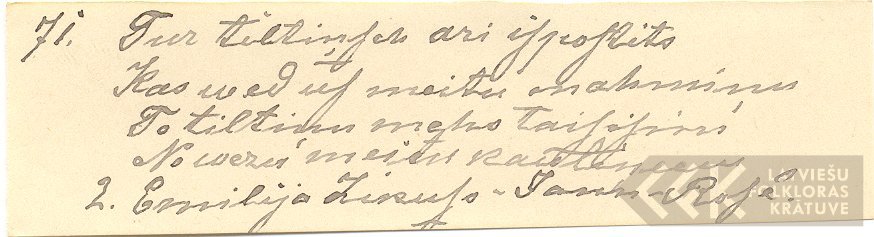 71. Tur tiltinsch ari ispostits
Kas wed us meitu nahminu
To tiltinu mehs taisisim
No wezu meitu kauliņeem
2. Emilija Ziruļs - Jaun-Rosē.
LATVIEŠU
FOLKLORAS
KRĀTUVE